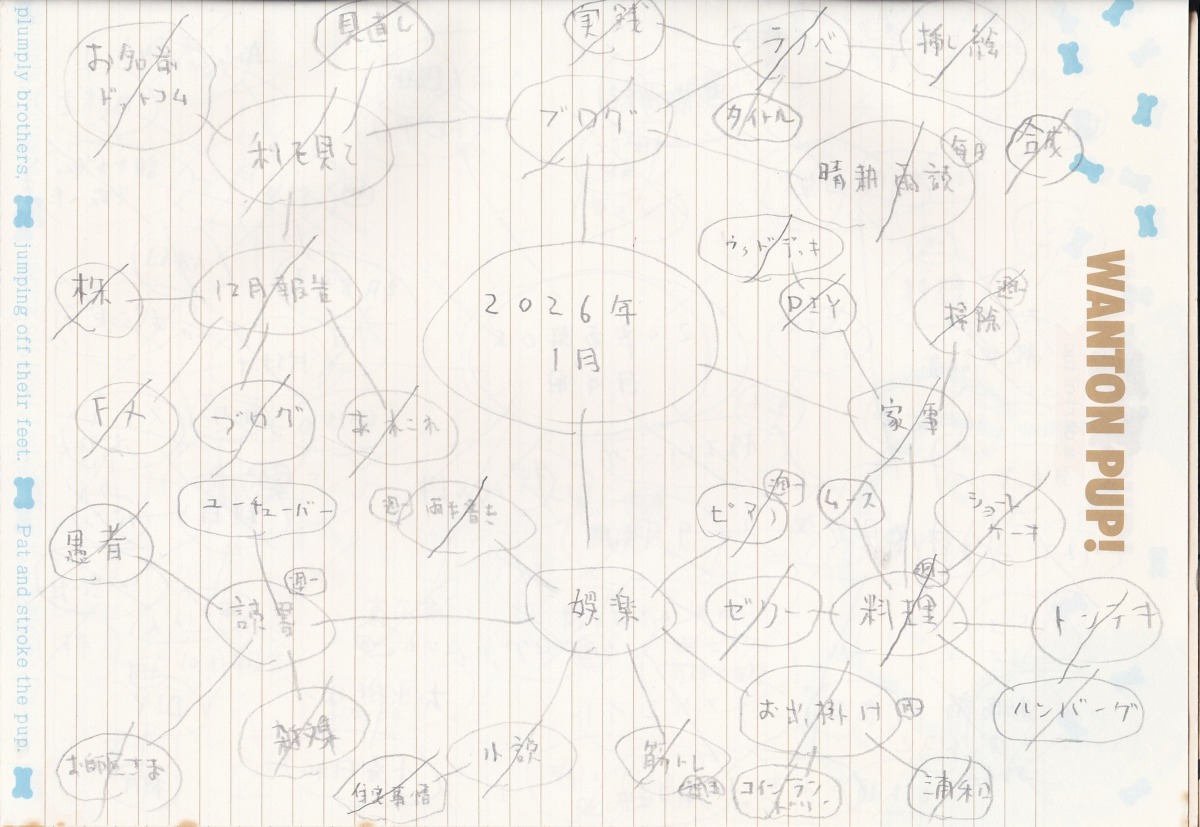 見直し
実践
ライベ
挿し絵
お知音
ドットコム
ブログ
タイトル
毎日
合成
利を見て
晴耕雨読
ウッドデッキ
株
12月報告
2026年
1月
DIY
週一
掃除
FX
ブログ
あれこれ
家事
ユーチューバー
週一
両手書き
ピアノ
週一
ムース
ショート
ケーキ
愚者
読書
週一
娯楽
ゼリー
料理
週一
トンテキ
雑文集
お出掛け
月一
ハンバーグ
お師匠さま
住宅事情
小説
筋トレ
コインラン
ドリー
浦和
plumply brothers,
jumping off their feet.
Pat and stroke the pup.
WANTON PUP!